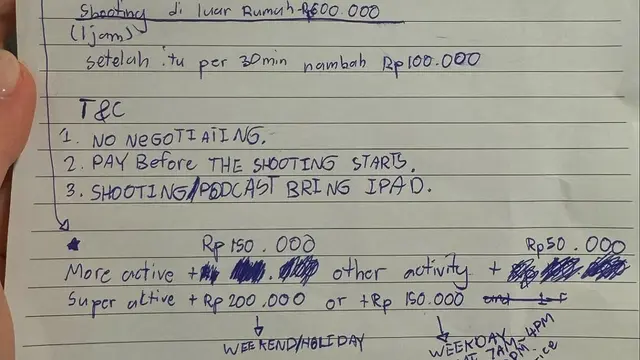 Shooting di luar Rumah-Rp600.000
(1jam)
setelah itu per 30min nambah Rp100.000
T&C
1. NO NEGOTIATING.
2. PAY Before THE SHOOTING STARTS.
3. SHOOTING/PODCAST BRING IPAD.
Rp150.000 Rp50.000
More active + other activity +
Super active +Rp200.000 or +Rp150.000
WEEKEND/HOLIDAY WEEKDAY
AT 7AM- 4PM